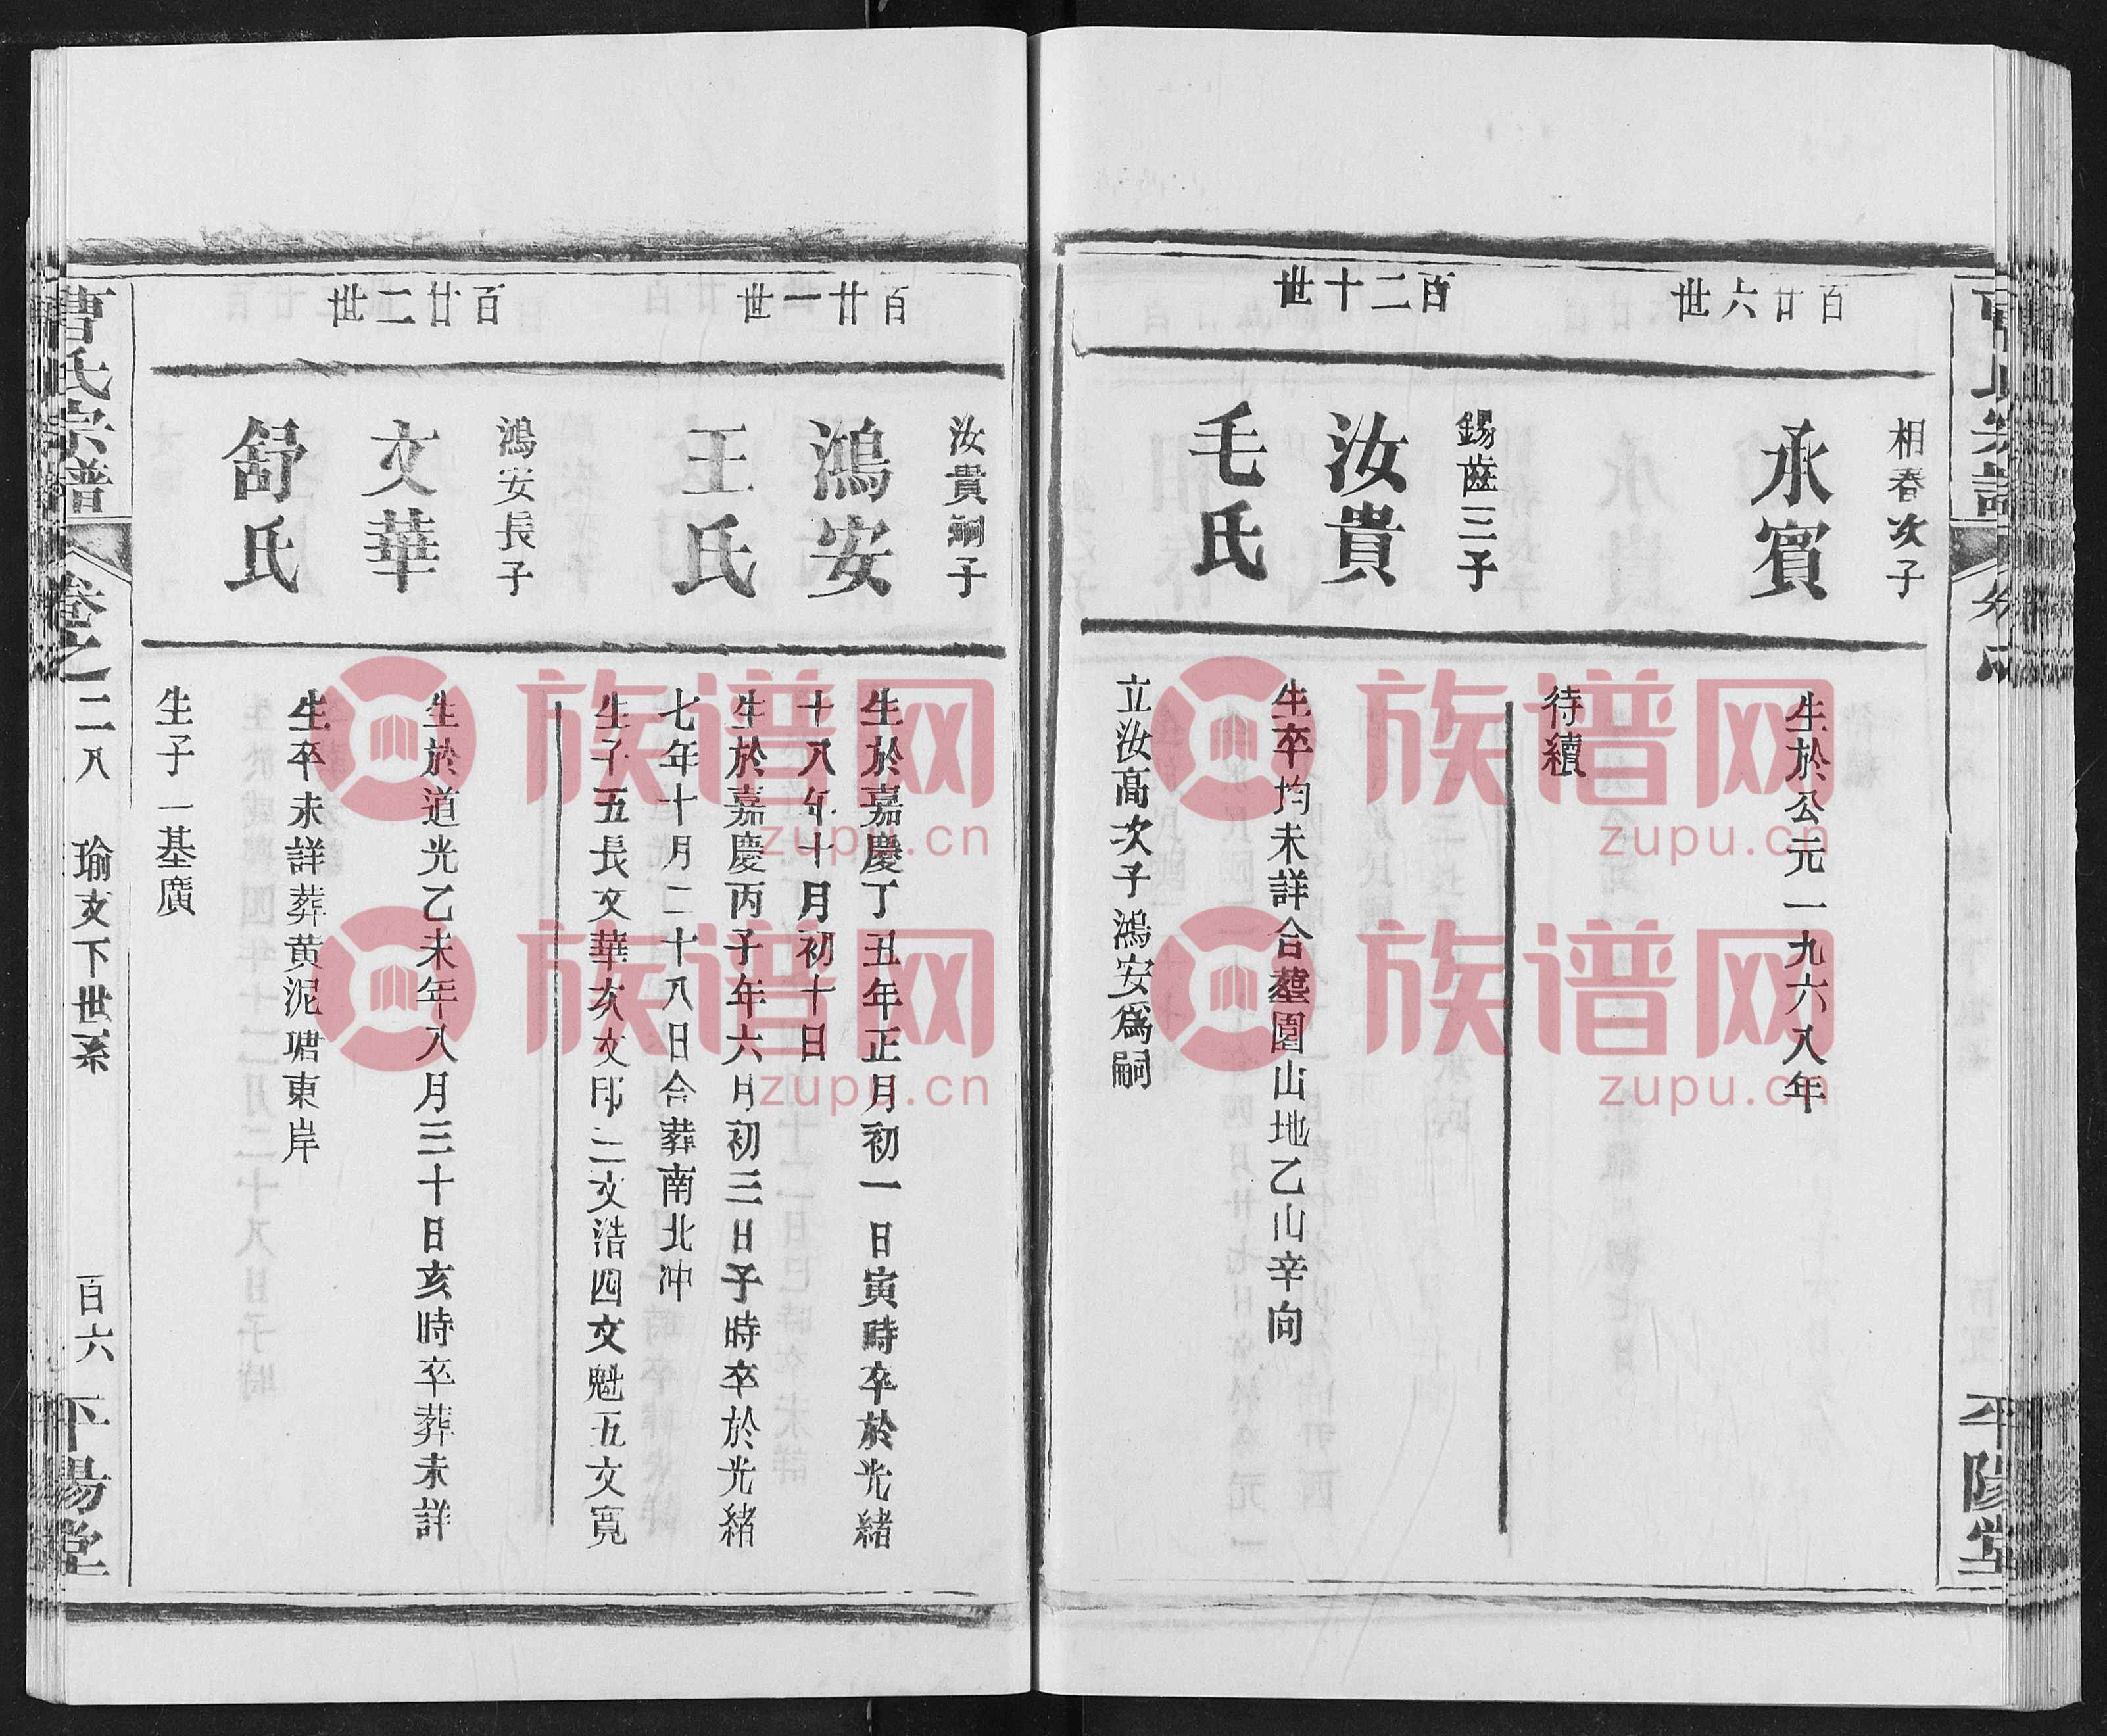 百廿六世
相春次子
承賓
生於公元一九六八年
待續
百二十世
錫齒三子
汝貴
毛氏
生卒均未詳合墓園山地乙山辛向
立汝高次子鴻安爲嗣
平陽堂
百廿一世
汝貴嗣子
鴻安
王氏
生於嘉慶丁丑年正月初一日寅時卒於光緒
十八年十月初十日
生於嘉慶丙子年六月初三日子時卒於光緒
七年十月二十八日合葬南北冲
生子五長文華亥文印二文浩四文魁五文寬
百廿二世
鴻安長子
文華
舒氏
生於道光乙未年八月三十日亥時卒葬未詳
生卒未詳葬黄泥塘東岸
生子一基廣
曹氏宗譜
卷之二八
瑜支下世系
百六
平陽堂
族谱网
zupu.cn
族谱网
zupu.cn
族谱网
zupu.cn
族谱网
zupu.cn